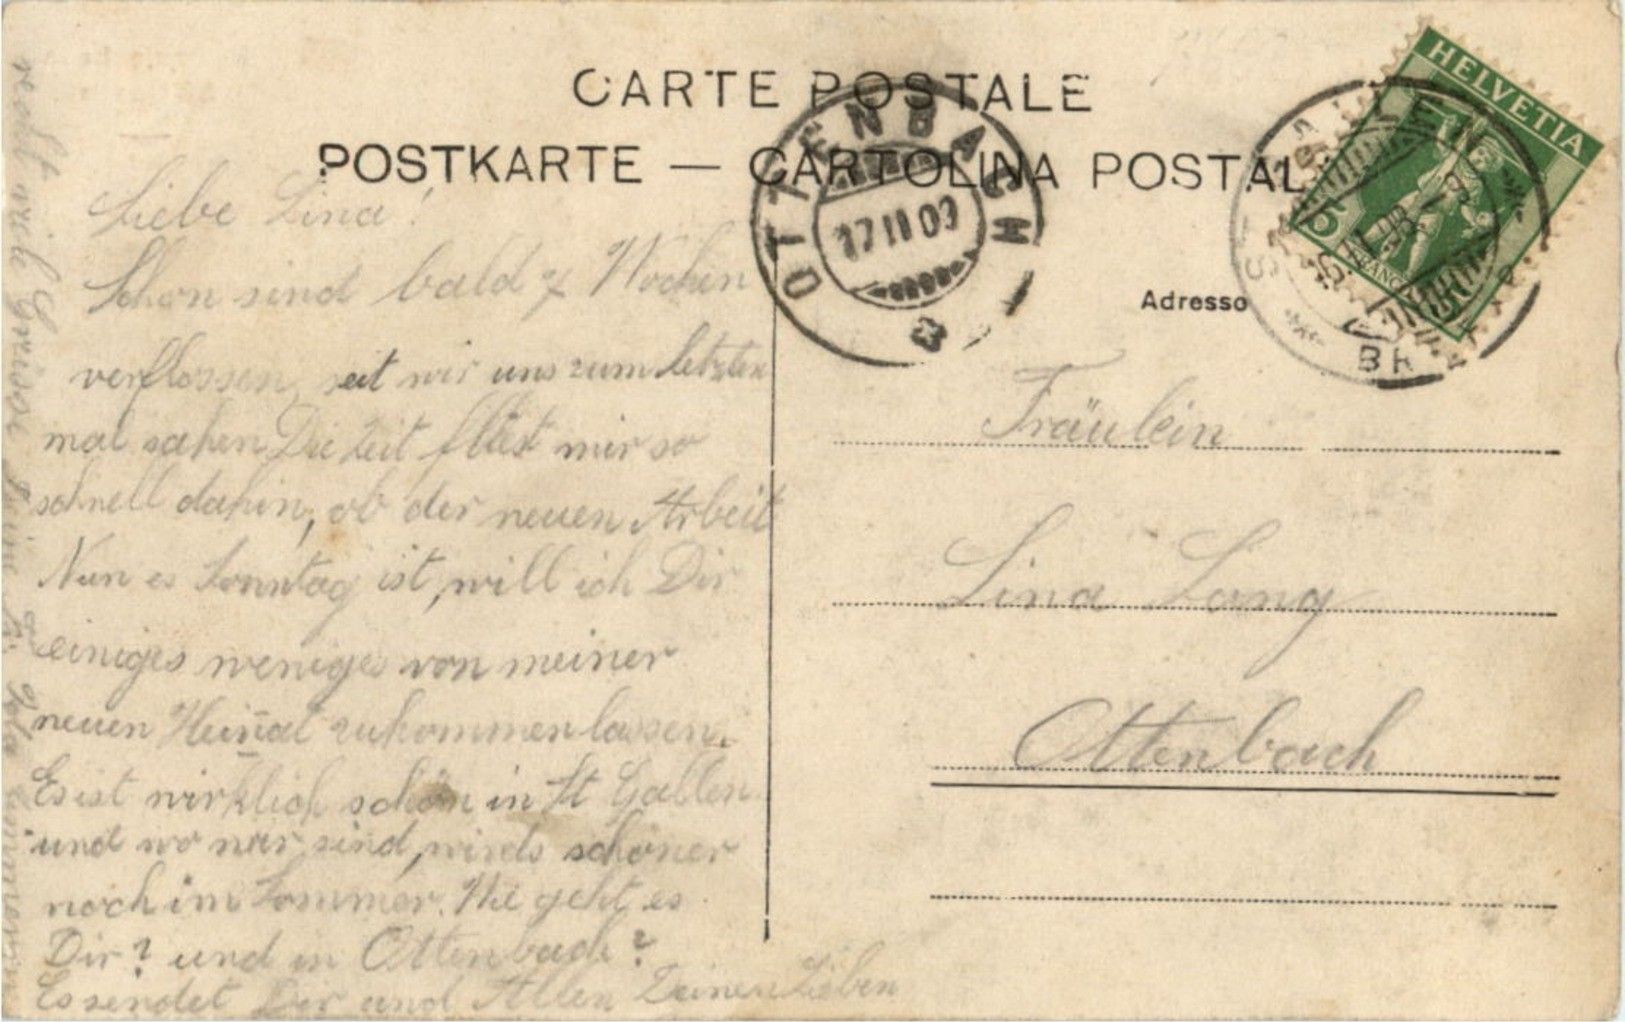 CARTE POSTALE
POSTKARTE — CARTOLINA POSTAL
HELVETIA
5
FRANCO
OTTENBACH
17 II 09
BR
Adresse
Liebe Lina!
Schon sind bald 7 Wochen
verflossen, seit wir uns zum letzten
mal sahen Die Zeit fliest mir so
schnell dahin, ob der neuen Arbeit
Nun es Sonntag ist, will ich Dir
einiges weniges von meiner
neuen Heimat zukommen lassen.
Es ist wirklich schön in St Gallen
und wo wir sind, wirds schöner
noch im Sommer. Wie geht es
Dir? und in Ottenbach?
Es sendet Dir und Allen Deinen Lieben
recht viele Grüsse
Fräulein
Lina Long
Ottenbach